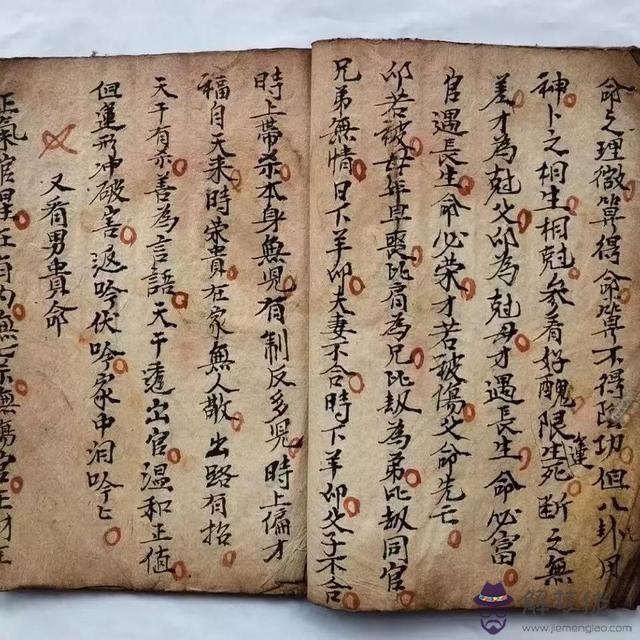 命之理微算得命算不得陰功但八卦用
神卜之相生相尅參看好醜限運生死斷之無
差才為尅父卬為尅母才遇長生命必富
官遇長生命必荣才若被傷父命先亡
卬若被母年旦喪比肩為兄比劫為弟比劫同官
兄弟無情日下羊卬夫妻不合時下羊卬父子不合
時上帶杀本身無児有制反多児時上偏才
福自天来時荣貴在家無人敵出路有招
天干有杀善為言語天干透出官温和正值
但運刑冲破害返吟伏吟家中泪吟亡
又看男貴命
正氣官星在月無杀無傷官正財正
解梦佬
www.jiemenglao.com